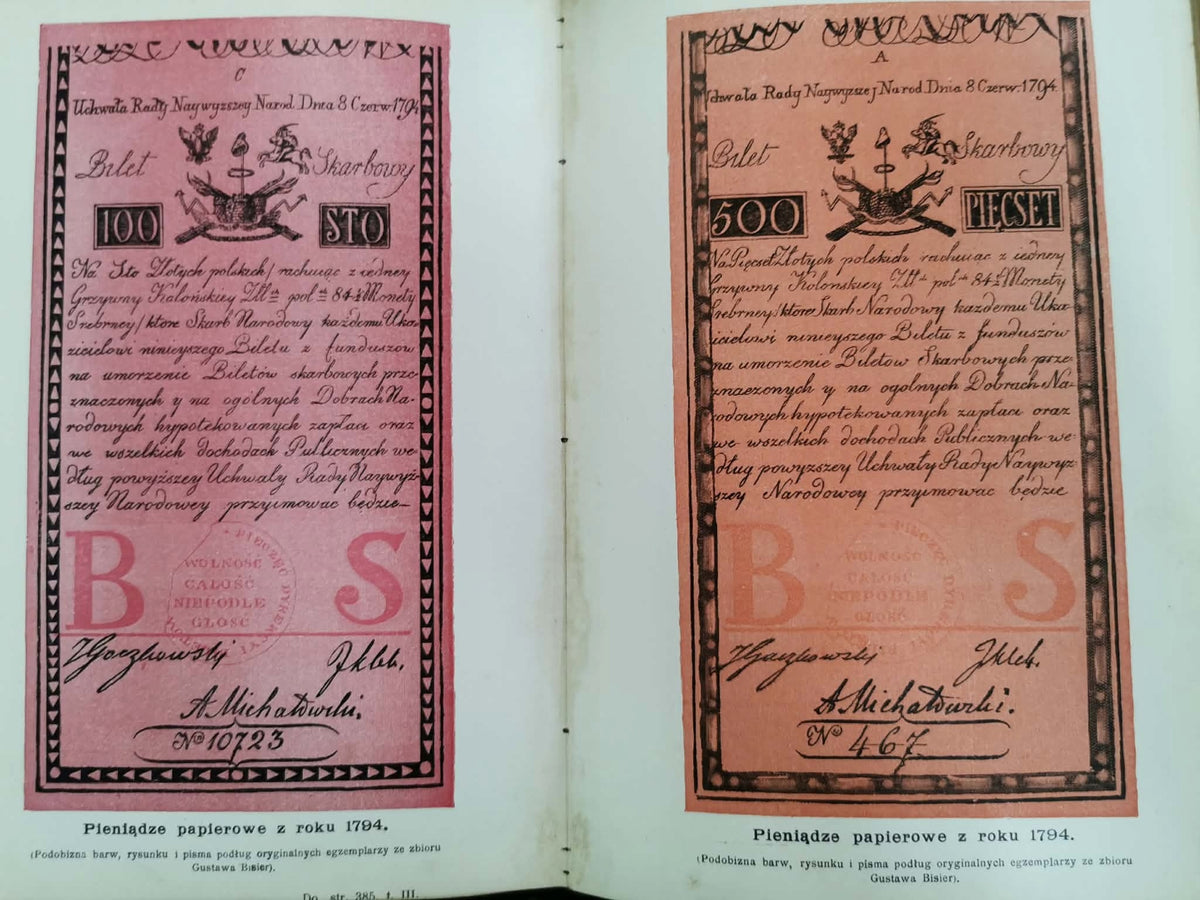 C
Uchwała Rady Naywyzszey Narod. Dnia 8 Czerw. 1794
Bilet Skarbowy
100 STO
Na Sto Złotych polskich / rachuiąc z iedney
Grzywny Kolońskiey Złł pol 84½ Monety
Srebrney / ktore Skarb Narodowy każdemu Uka-
zicielowi ninieyszego Biletu z funduszow
na umorzenie Biletów skarbowych prze-
znaczonych y na ogólnych Dobrach Na-
rodowych hypotekowanych zapłaci oraz
we wszelkich dochodach Publicznych we-
dług powyższey Uchwały Rady Naywyż-
szey Narodowey przyimowac będzie
B S
PIECZĘĆ DYREKCYI
WOLNOSC
CAŁOŚĆ
NIEPODLE
GŁOSC
JGaczkowski
A Michałowski.
No 10723
Pieniądze papierowe z roku 1794.
(Podobizna barw, rysunku i pisma podług oryginalnych egzemplarzy ze zbioru
Gustawa Bisier).
Do str. 385, t. III.
A
Uchwała Rady Naywyzszej Narod. Dnia 8 Czerw. 1794.
Bilet Skarbowy
500 PIĘCSET
Na Pięcset Złotych polskich rachuiąc z iedney
Grzywny Kolonskiey Złł pol 84½ Monety
Srebrney / ktore Skarb Narodowy kazdemu Uka-
zicielowi ninieyszego Biletu z funduszów
na umorzenie Biletow Skarbowych prze-
znaczonych y na ogolnych Dobrach Na-
rodowych hypotekowanych zapłaci oraz
we wszelkich dochodach Publicznych we-
dług powyzszey Uchwały Rady Naywyz-
szey Narodowey przyimowac będzie
B S
PIECZĘĆ DYREKCYI
WOLNOŚC
CAŁOŚĆ
NIEPODLE
GŁOSĆ
JGaczkowski
A Michałowski.
No 467
Pieniądze papierowe z roku 1794.
(Podobizna barw, rysunku i pisma podług oryginalnych egzemplarzy ze zbioru
Gustawa Bisier).